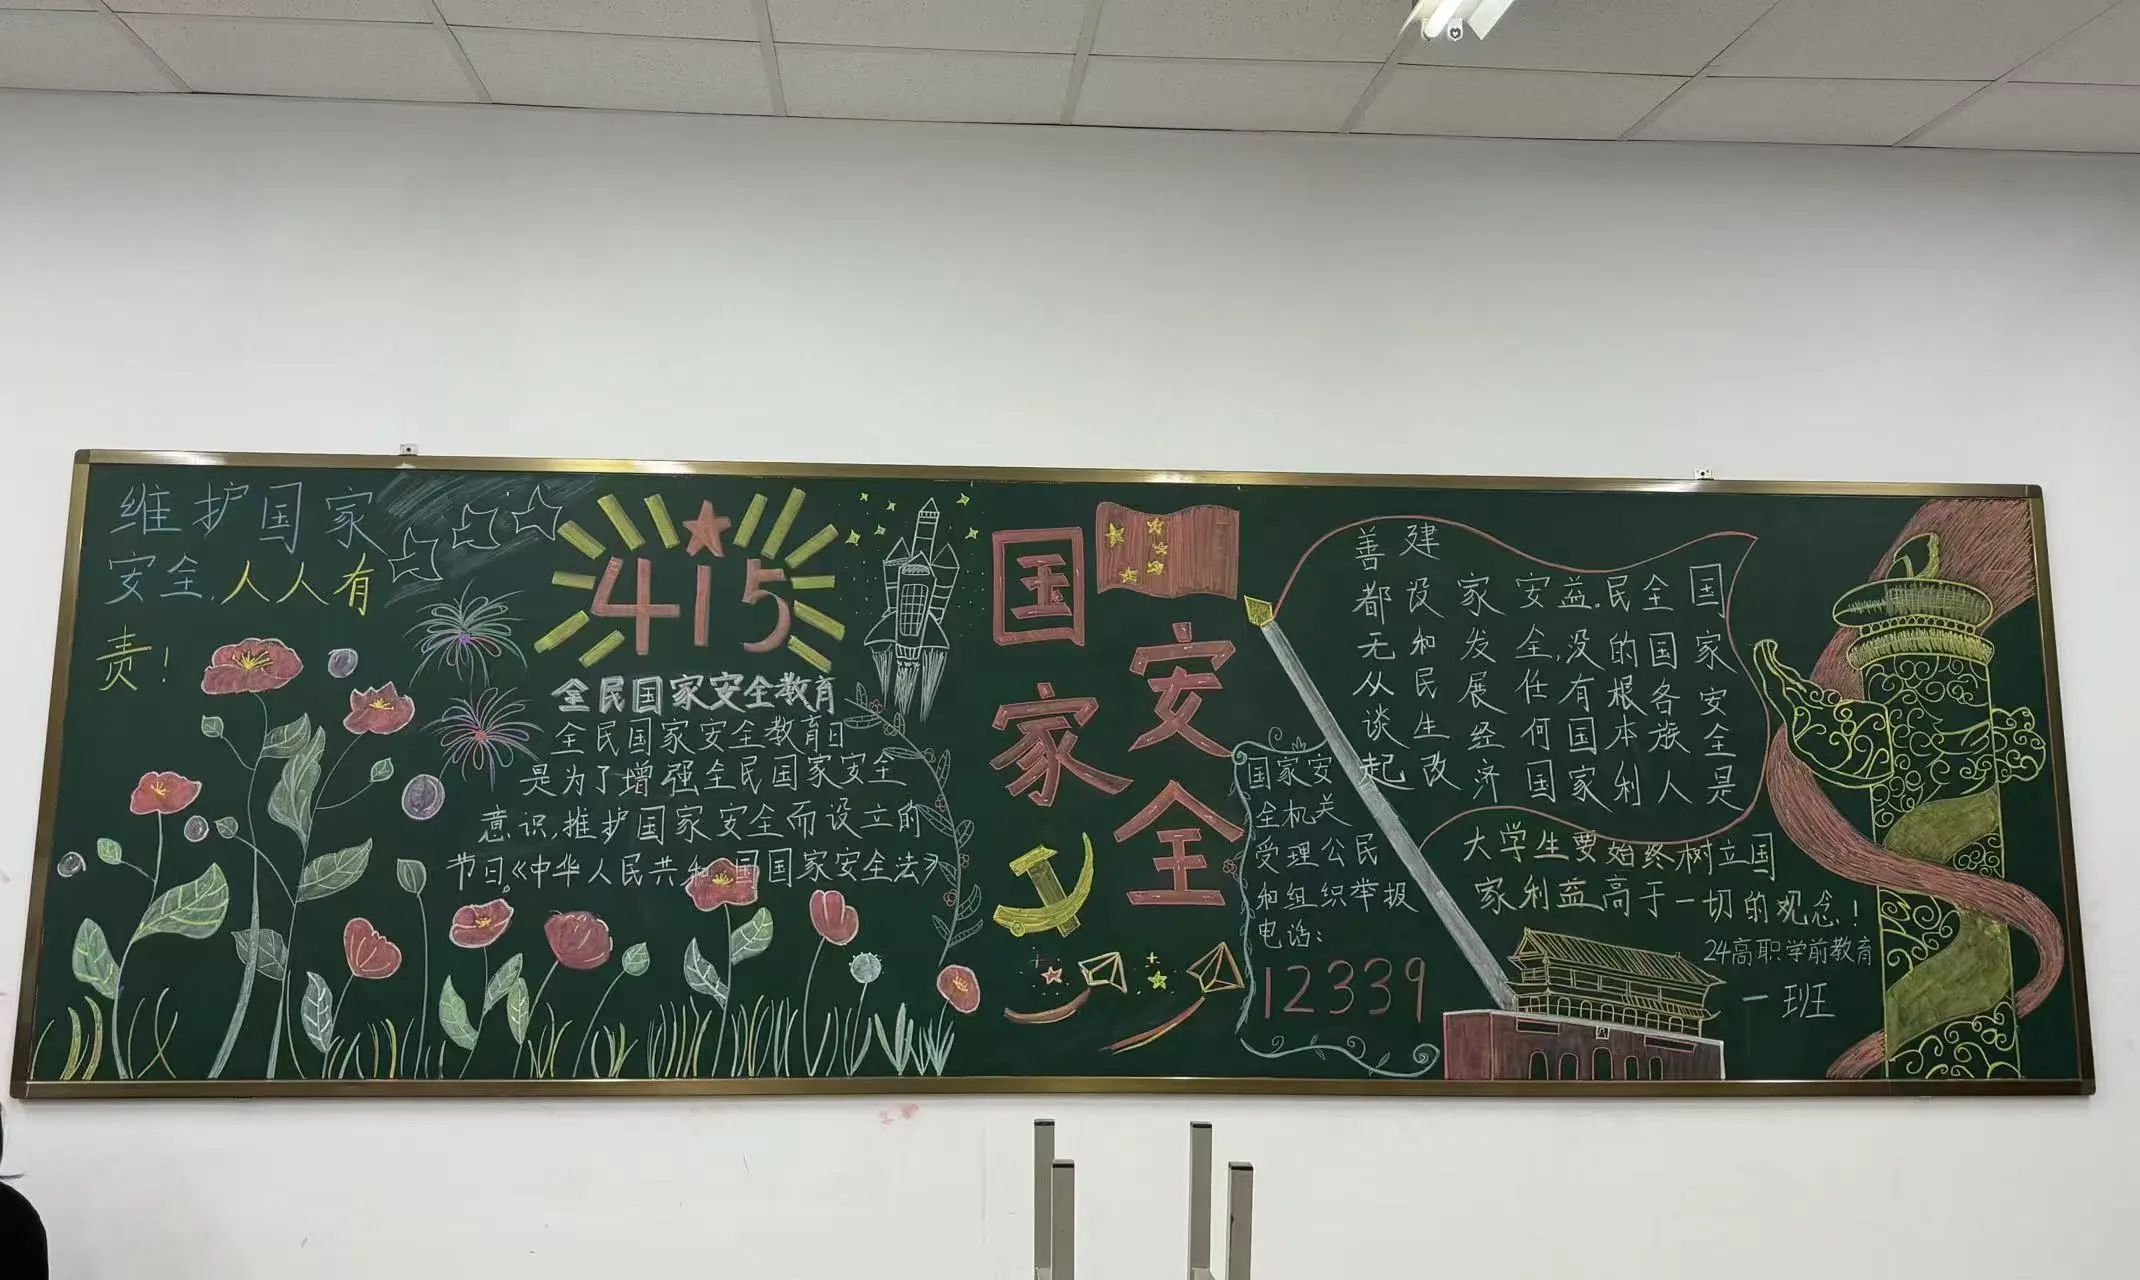 维护国家
安全,人人有
责!
415
全民国家安全教育
全民国家安全教育日
是为了增强全民国家安全
意识,推护国家安全而设立的
节日。《中华人民共和国国家安全法》
国家
安全
国家安
全机关
受理公民
和组织举报
电话:
12339
国家安全是
全国各族人
民的根本利
益。没有国家
安全,任何国
家发展经济
建设和民生改
善都无从谈起
大学生要始终树立国
家利益高于一切的观念!
24高职学前教育
一班